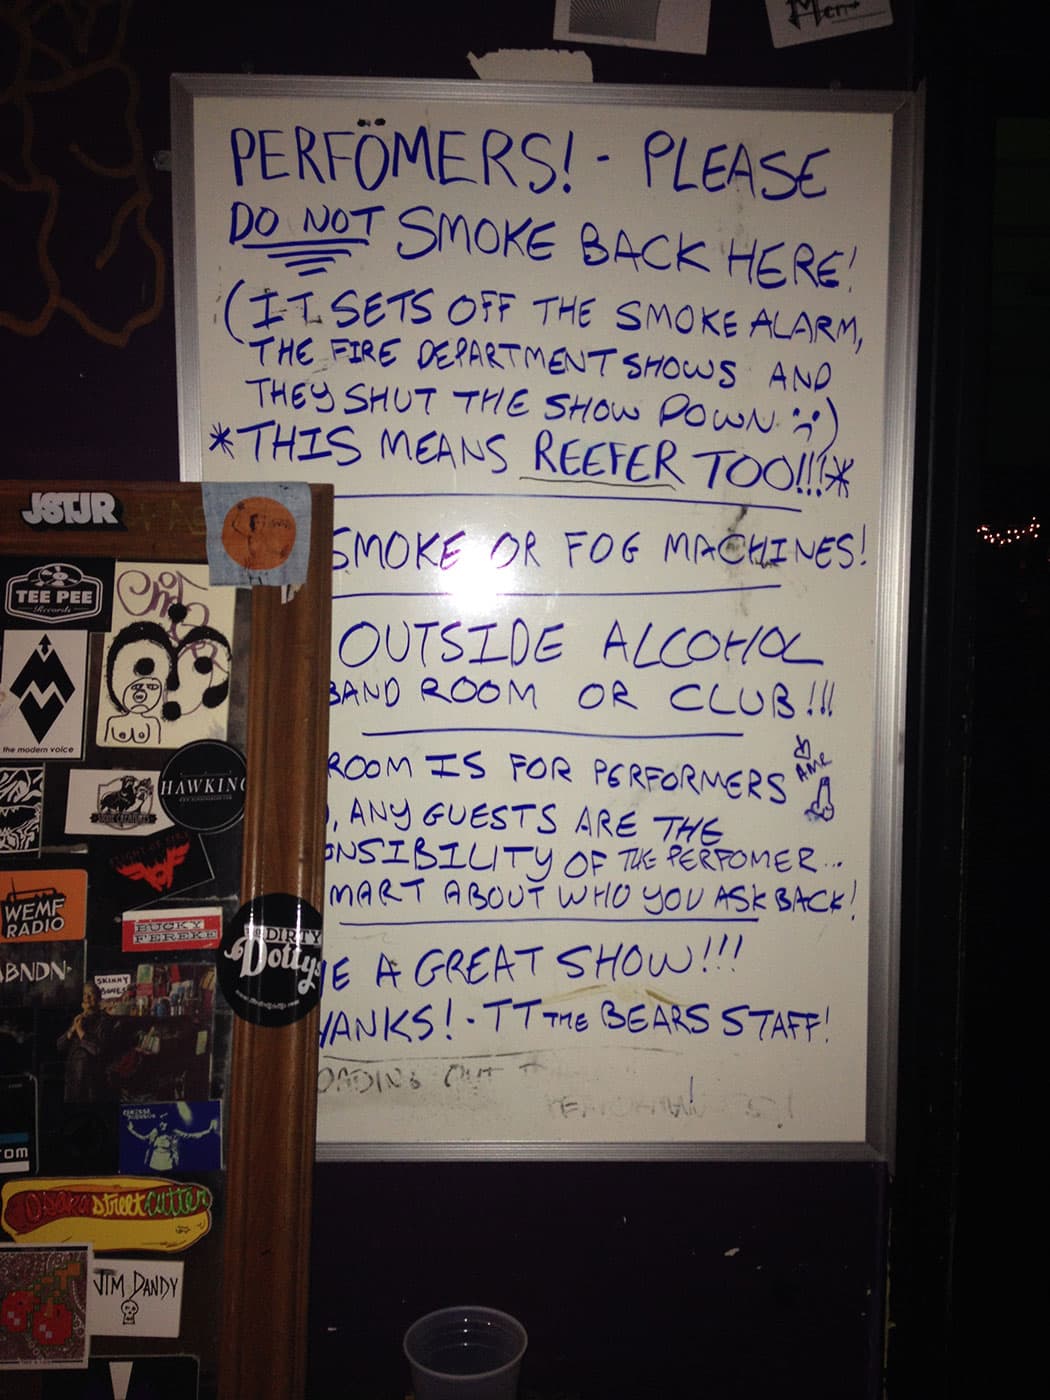 PERFÖMERS! - PLEASE
DO NOT SMOKE BACK HERE!
(IT SETS OFF THE SMOKE ALARM,
THE FIRE DEPARTMENT SHOWS AND
THEY SHUT THE SHOW DOWN :()
*THIS MEANS REEFER TOO!!!*
SMOKE OR FOG MACHINES!
OUTSIDE ALCOHOL
BAND ROOM OR CLUB!!!
ROOM IS FOR PERFORMERS
, ANY GUESTS ARE THE
ONSIBILITY OF THE PERFOMER...
MART ABOUT WHO YOU ASK BACK!
E A GREAT SHOW!!!
HANKS! - TT THE BEARS STAFF!
OADING OUT
JSTJR
TEE PEE
Records
the modern voice
HAWKING
WEMF
RADIO
BUCKY
FEREKE
THE DIRTY
Dottys
ABNDN
SKINNY
BONES
OM
Osaka street cutter
JIM DANDY